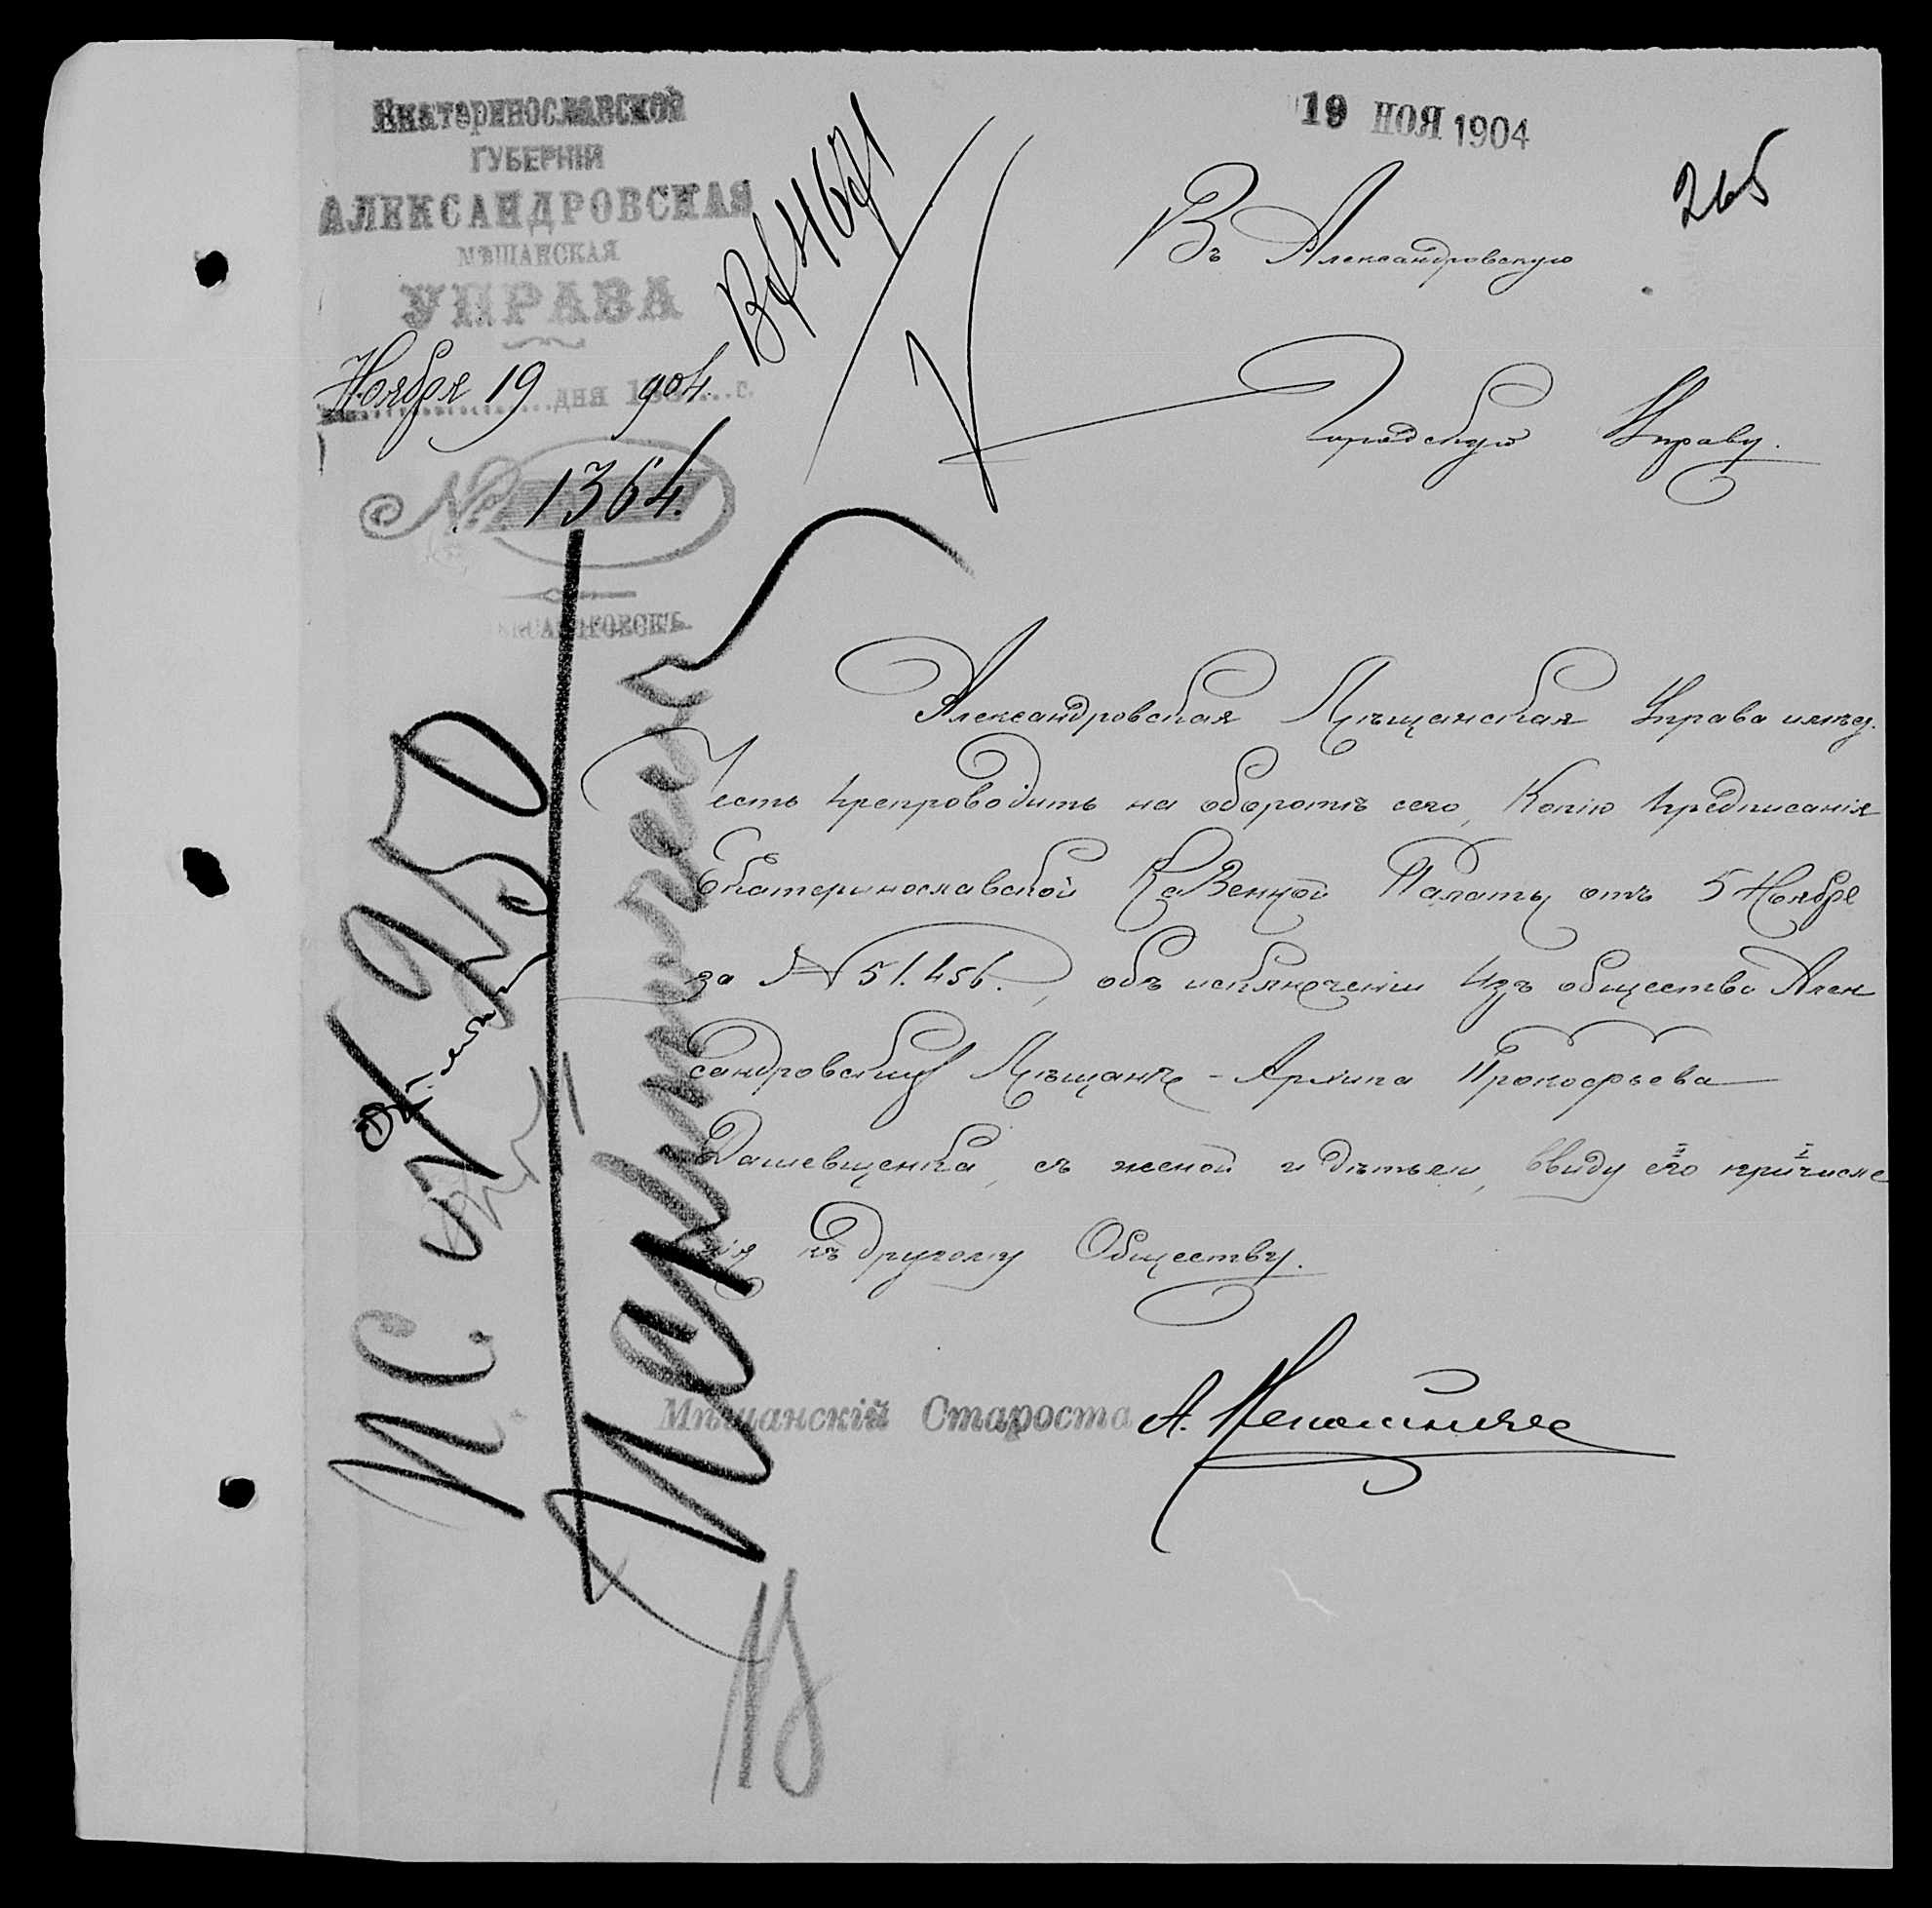 Екатеринославской
ГУБЕРНІИ
АЛЕКСАНДРОВСКАЯ
МѢЩАНСКАЯ
УПРАВА
Ноября 19 дня 1904 г.
№ 1364.
АЛЕКСАНДРОВСКЪ
19 НОЯ 1904
265
Въ Александровскую
Городскую Управу.
Александровская Мѣщанская Управа имѣет
честь препроводить на оборотѣ сего, Копію предписанія
Екатеринославской Казенной Палаты отъ 5 Ноября
за № 51.456., объ исключеніи изъ общества Алек
сандровских Мѣщанъ - Архипа Прокофьева
Дашевщенка, съ женой и дѣтьми, ввиду его причисле
нія къ другому Обществу.
Мѣщанскій Староста А.
М. С. 250